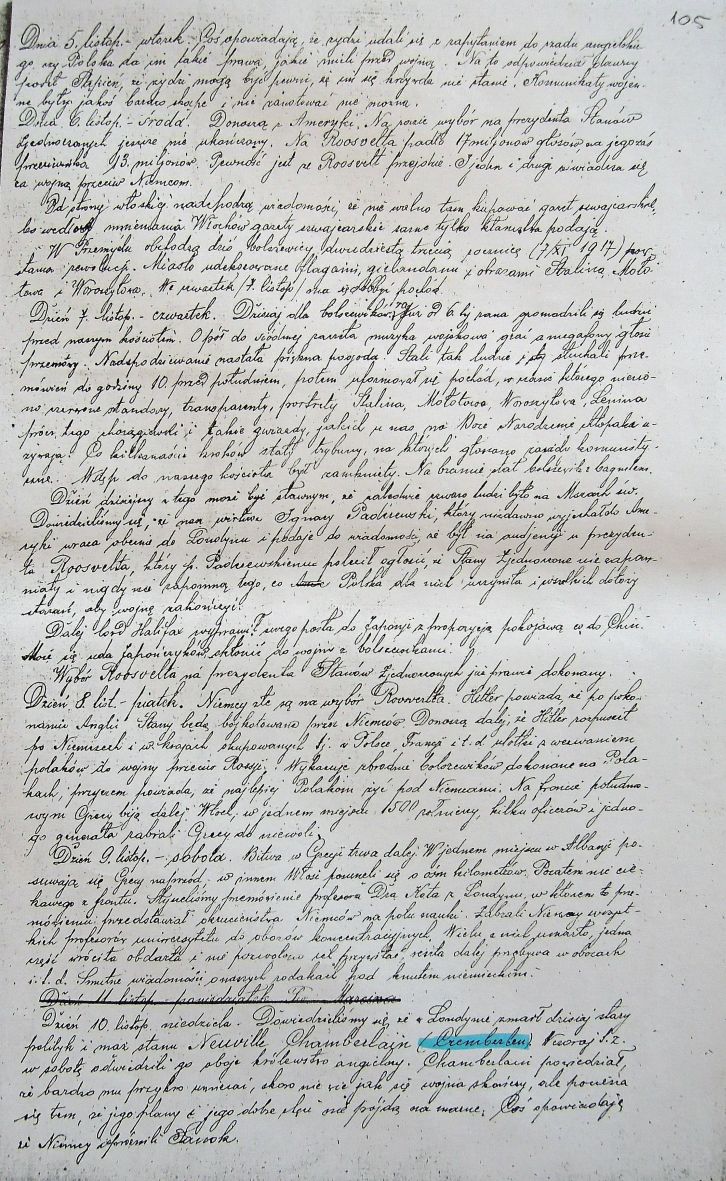 105
Dnia 5. listop. - wtorek. Coś opowiadają, że żydzi udali się z zapytaniem do rządu angielskie-
go czy Polska da im takie prawa, jakie mieli przed wojną. Na to odpowiedział
że żydzi mogą być pewni, że im się krzywda nie stanie. Komunikaty wojen-
ne były jakoś bardzo skąpe i nic zanotować nie można.
Dnia 6. listop. - środa. Donoszą z Ameryki. Na razie wybór na prezydenta Stanów
Zjednoczonych jeszcze nie ukończony. Na Roosvelta padło 17 miljonów głosów na jego zaś
przeciwnika 13. miljonów. Pewność jest że Roosvelt przejdzie. I jeden i drugi oświadcza się
za wojną przeciw Niemcom.
Od strony włoskiej nadchodzą wiadomości, że nie wolno tam kupować gazet szwajcarskich,
bo według mniemania Włochów gazety szwajcarskie same tylko kłamstwa podają.
W Przemyślu obchodzą dziś bolszewicy dwudziestą trzecią rocznicę (7/XI 1917) pow-
stania rewolucji. Miasto udekorowane flagami, girlandami i obrazami Stalina, Moło-
towa i Woroszyłowa. We czwartek /7. listop/ ma się odbyć pochód.
Dzień 7. listop. - czwartek. Dzisiaj dla bolszewików już od 6. tej rana gromadzili się ludzie
przed naszym kościołem. O pół do siódmej zaczęła muzyka wojskowa grać a megafony głosić
przemowy. Nadspodziewanie nastała piękna pogoda. Stali tak ludzie i słuchali prze-
mówień do godziny 10. przed południem, potem uformował się pochód, w czasie którego niesio-
no czerwone sztandary, transparenty, portrety Stalina, Mołotowa, Woroszyłowa, Lenina
prócz tego chorągiewki i takie gwiazdy, jakich u nas na Boże Narodzenie chłopaki u-
żywają. Co kilkanaście kroków stały trybuny, na których głoszono zasady komunisty-
czne. Wstęp do naszego kościoła był zamknięty. Na bramie stał bolszewik z bagnetem.
Dzień dzisiejszy z tego może być sławnym, że zaledwie czworo ludzi było na Mszach św.
Dowiedzieliśmy się, że nasz wirtuoz Ignacy Paderewski, który niedawno wyjechał do Ame-
ryki wraca obecnie do Londynu i podaje do wiadomości, że był na audjencji u prezyden-
ta Roosvelta, który p. Paderewskiemu polecił ogłosić, że Stany Zjednoczone nie zapom-
niały i nigdy nie zapomną tego, co Polska dla nich uczyniła i wszelkich dołożą
starań, aby wojnę zakończyć.
Dalej lord Halifax wyprawił swego posła do Japonji z propozycją pokojową co do Chin.
Może się uda Japończyków skłonić do wojny z bolszewikami.
Wybór Roosvelta na prezydenta Stanów Zjednoczonych już prawie dokonany.
Dzień 8. list. - piątek. Niemcy źle są na wybór Roosvelta. Hitler powiada, że po poko-
naniu Anglii, Stany będą bojkotowane przez Niemców. Donoszą dalej, że Hitler rozpuścił
po Niemczech i w krajach okupowanych tj. w Polsce, Francji i t. d. ulotki z wezwaniem
polaków do wojny przeciw Rosji. Wykazuje zbrodnie bolszewików dokonane na Pola-
kach, przyczem powiada, że najlepiej Polakom żyć pod Niemcami. Na froncie południo-
wym Grecy biją dalej Włoch, w jednem miejscu 1500 żołnierzy, kilku oficerów i jedne-
go generała zabrali Grecy do niewoli.
Dzień 9. listop. - sobota. Bitwa w Grecji trwa dalej. W jednem miejscu w Albanji po-
suwają się Grecy naprzód, w innem Włosi posunęli się o ośm kilometrów. Pozatem nic cie-
kawego z frontu. Słyszeliśmy przemówienie profesora Dra Kota z Londynu, w którem to prze-
mówieniu przedstawiał okrucieństwa Niemców na polu nauki. Zabrali Niemcy wszyst-
kich profesorów uniwersytetu do obozów koncentracyjnych. Wielu z nich umarło, jedna
część wróciła obdarta i nie pozwolono jej przyjąć, reszta dalej przebywa w obozach
i. t. d. Smutne wiadomości o naszych rodakach pod knutem niemieckim.
Dzień 11. listop. - poniedziałek Św. Marcina
Dzień 10. listop. niedziela. Dowiedzieliśmy się, że w Londynie zmarł dzisiaj stary
polityk i mąż stanu Neuville Chamberlajn (Czemberlen). Wczoraj t. z.
w sobotę odwiedzili go oboje królewstwo angielscy. Chamberlain powiedział,
że bardzo mu przykro umierać, skoro nie wie jak się wojna skończy, ale pociesza
się tem, że jego plany i jego dobre chęci nie pójdą na marne. Coś opowiadają
że Niemcy opróżnili Sanok.